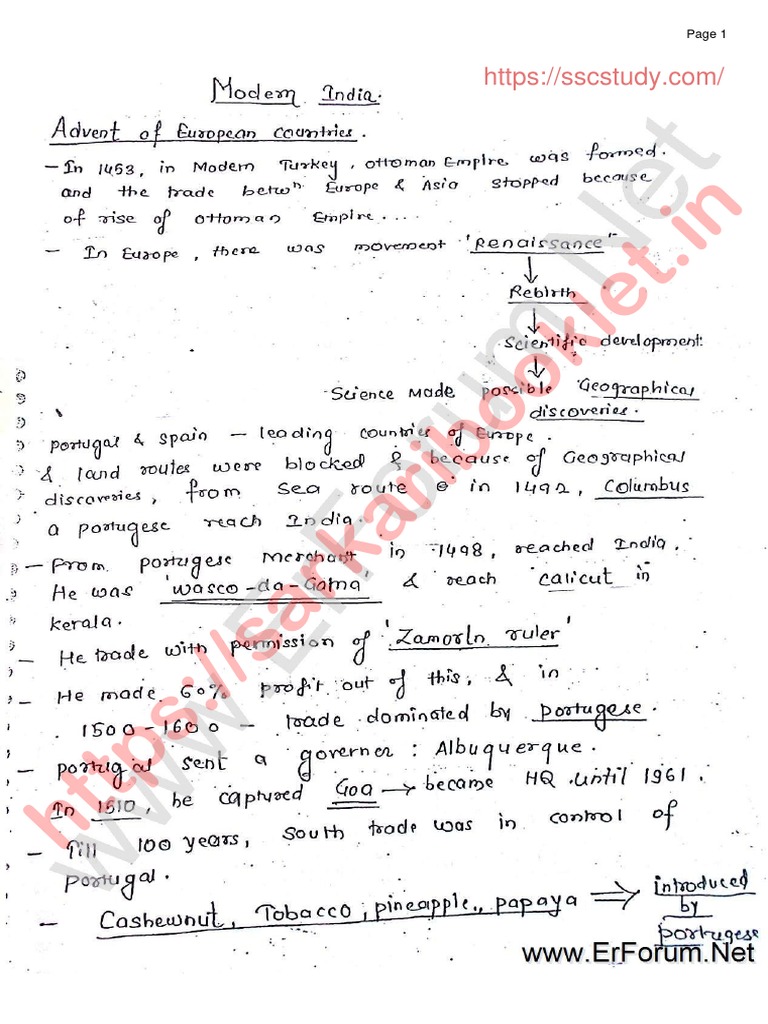 Page 1
https://sscstudy.com/
Modern India.
Advent of European countries.
- In 1453, in Modern Turkey, ottoman Empire was formed.
and the trade betwn Europe & Asia stopped because
of rise of ottoman Empire....
- In Europe, there was movement 'Renaissance'
Rebirth
Scientific development:
Science made possible Geographical
discoveries.
portugal & spain - leading countries of Europe.
& land routes were blocked & because of Geographical
discoveries, from sea route in 1492, Columbus
a portugese reach India.
- From portugese Merchant in 1498, reached India.
He was 'wasco-da-Gama' & reach calicut in
kerala.
- He trade with permission of 'Zamorin ruler'
- He made 60% profit out of this, & in
1500-1600 - trade dominated by portugese.
- portugal sent a governer : Albuquerque.
In 1510, he captured Goa → became HQ until 1961.
- Till 100 years, south trade was in control of
portugal.
- Cashewnut, Tobacco, pineapple, papaya ⇒ introduced
by
portugese
www.ErForum.Net
https://sarkaribooklet.in
www.ErForum.Net